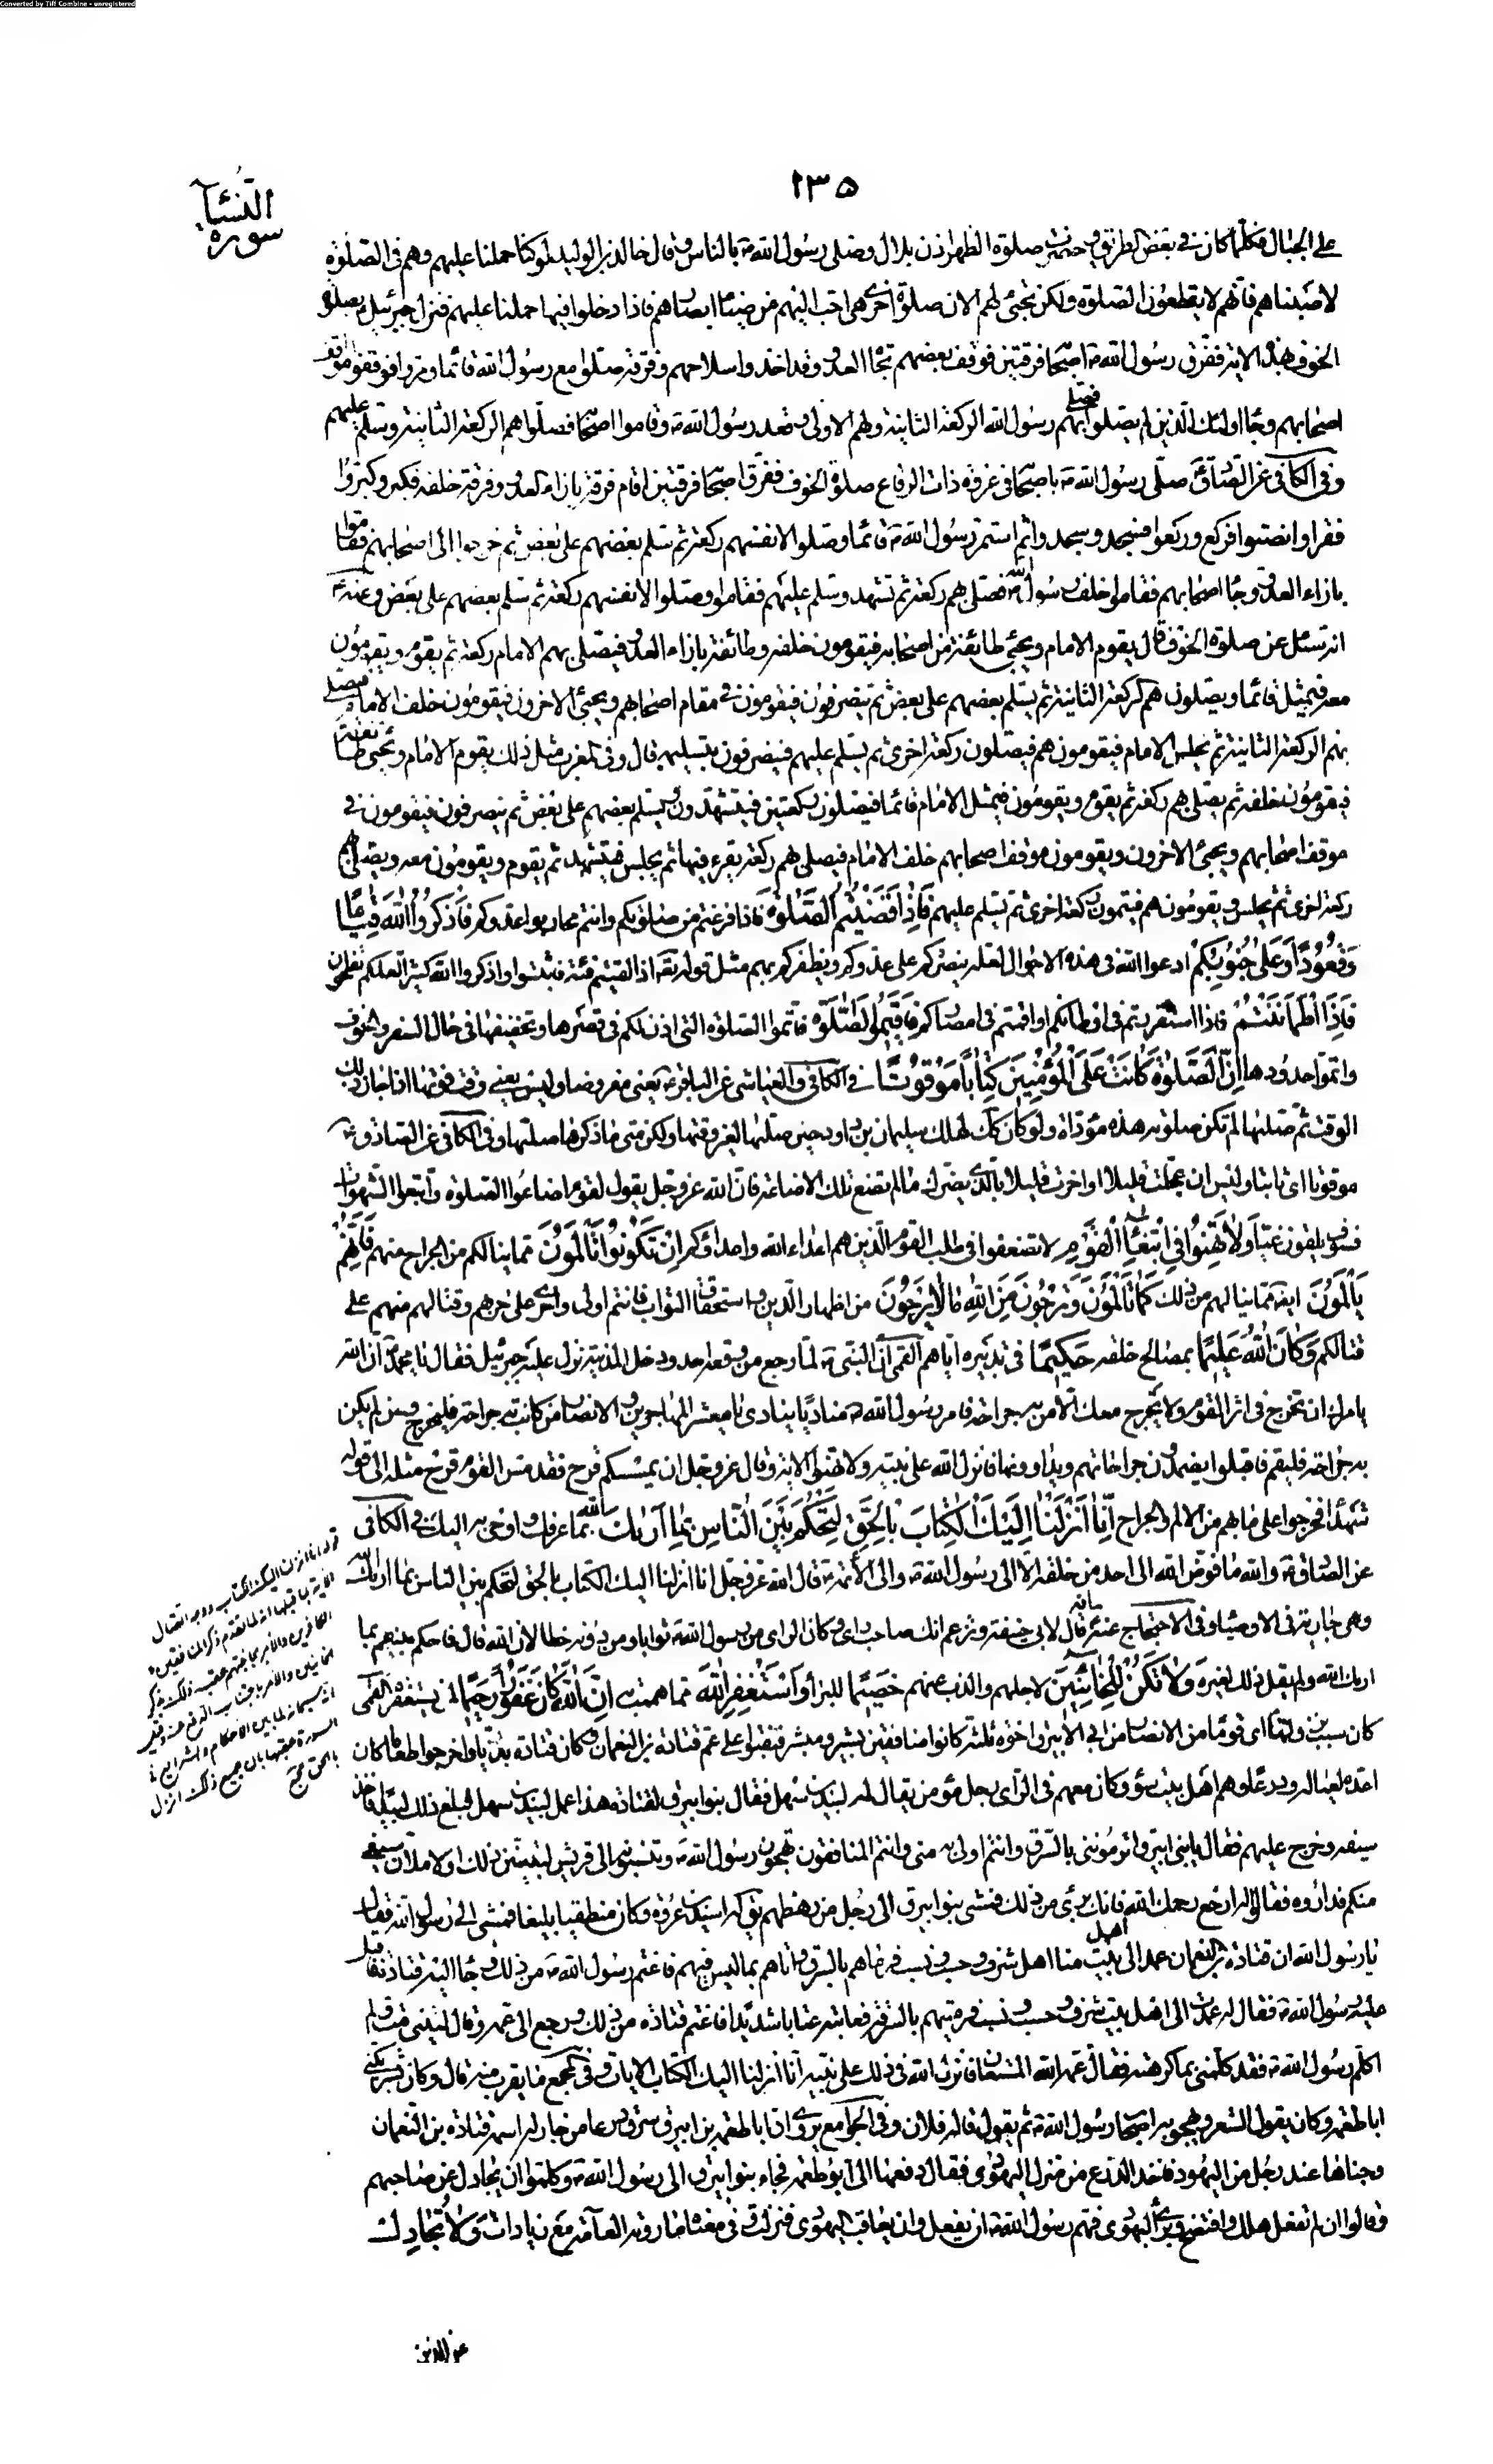 Converted by Tiff Combine - unregistered
١٣٥
سورة النساء
على الجبال فلما كان في بعض الطريق وحضرت صلوة الظهر اذن بلال وصلى رسول الله ص بالناس وقال خالد بن الوليد لو كنا حملنا عليهم وهم فى الصلوة
لاصبناهم فانهم لا يقطعون الصلوة ولكن تجئ لهم الان صلوة اخرى هى احب اليهم من ضياء ابصارهم فاذا دخلوا فيها حملنا عليهم فنزل جبرئيل بصلوة
الخوف بهذه الاية ففرق رسول الله ص اصحابه فرقتين فوقف بعضهم تجاه العدو وقد اخذوا سلاحهم وفرقة صلوا مع رسول الله قائما ومروا فوقفوا مواقف
اصحابهم وجاء اولئك الذين لم يصلوا فصلى بهم رسول الله الركعة الثانية ولهم الاولى وقعد رسول الله ص وقاموا اصحابه فصلوا هم الركعة الثانية وسلم عليهم
وفى الكافى عن الصادق صلى رسول الله ص باصحابه فى غزوة ذات الرقاع صلوة الخوف ففرق اصحابه فرقتين اقام فرقة بازاء العدو وفرقة خلفه فكبر وكبروا
فقرا وانصتوا فركع وركعوا فسجد وسجدوا ثم استمر رسول الله ص قائما وصلوا لانفسهم ركعة ثم سلم بعضهم على بعض ثم خرجوا الى اصحابهم فقاموا
بازاء العدو وجاء اصحابهم فقاموا خلف رسول الله ص فصلى بهم ركعة ثم تشهد وسلم عليهم فقاموا وصلوا لانفسهم ركعة ثم سلم بعضهم على بعض وعنه ع
انه سئل عن صلوة الخوف قال يقوم الامام ويجئ طائفة من اصحابه فيقومون خلفه وطائفة بازاء العدو فيصلى بهم الامام ركعة ثم يقوم ويقومون
معه فيمثل قائما ويصلون هم الركعة الثانية ثم يسلم بعضهم على بعض ثم ينصرفون فيقومون فى مقام اصحابهم ويجئ الاخرون فيقومون خلف الامام فيصلى
بهم الركعة الثانية ثم يجلس الامام فيقومون هم فيصلون ركعة اخرى ثم يسلم عليهم فينصرفون بتسليمه قال وفى المغرب مثل ذلك يقوم الامام وتجئ طائفة
فيقومون خلفه ثم يصلى بهم ركعة ثم يقوم ويقومون فيمثل الامام قائما فيصلون ركعتين فيتشهدون ويسلم بعضهم على بعض ثم ينصرفون فيقومون فى
موقف اصحابهم ويجئ الاخرون ويقومون موقف اصحابهم خلف الامام فيصلى بهم ركعة يقرء فيها ثم يجلس فيتشهد ثم يقوم ويقومون معه ويصلى بهم
ركعة اخرى ثم يجلس ويقومون هم فيتمون ركعة اخرى ثم يسلم عليهم فَاِذا قَضَيْتُمُ الصَّلٰوةَ فاذا فرغتم من صلوتكم وانتم محاربوا عدوكم فَاذْكُرُوا اللّٰهَ قِيٰامًا
وَقُعُودًا وَعَلىٰ جُنُوبِكُمْ ادعوا الله فى هذه الاحوال لعله ينصركم على عدوكم ويظفركم بهم مثل قوله تعه اذا لقيتم فئة فاثبتوا واذكروا الله كثيرا لعلكم تفلحون
فَاِذَا اطْمَأْنَنْتُمْ فاذا استقررتم فى اوطانكم واقمتم فى امصاركم فَاَقِيمُوا الصَّلٰوةَ فاتموا الصلوة التى اذن لكم فى قصرها وتخفيفها فى حال السفر والخوف
واتموا حدودها اِنَّ الصَّلٰوةَ كٰانَتْ عَلَى الْمُؤْمِنِينَ كِتٰابًا مَوْقُوتًا فى الكافى والعياشى عن الباقر ع يعنى مفروضا وليس يعنى وقت فوتها اذا جاز ذلك
الوقت ثم صليها لم تكن صلوته هذه مؤداة ولو كان كك لهلك سليمان بن داود حين صليها لغير وقتها ولكن متى ما ذكرها صليها وفى الكافى عن الصادق ع
موقوتا اى ثابتا وليس ان عجلت قليلا او اخرت قليلا بالذى يضرك ما لم تضع تلك الاضاعة فان الله عز وجل يقول لقوم اضاعوا الصلوة واتبعوا الشهوات
فسوف يلقون غيا وَلٰا تَهِنُوا فِى ابْتِغٰاءِ الْقَوْمِ لا تضعفوا فى طلب القوم الذين هم اعداء الله واعداؤكم اِنْ تَكُونُوا تَأْلَمُونَ مما ينالكم من الجراح منهم فَاِنَّهُمْ
يَأْلَمُونَ ايضا مما ينالهم من ذلك كَمٰا تَأْلَمُونَ وَتَرْجُونَ مِنَ اللّٰهِ مٰا لٰا يَرْجُونَ من اظهار الدين واستحقاق الثواب فانتم اولى واحرى على حربهم وقتالهم منهم على
قتالكم وَكٰانَ اللّٰهُ عَلِيمًا بمصالح خلقه حَكِيمًا فى تدبيره اياهم القمى ان النبى ص لما رجع من وقعة احد ودخل المدينة نزل عليه جبرئيل فقال يا محمد ان الله
يامرك ان تخرج فى اثر القوم ولا يخرج معك الا من به جراحة فامر رسول الله ص مناديا ينادى يا معشر المهاجرين والانصار من كانت به جراحة فليخرج ومن لم يكن
به جراحة فليقم فاقبلوا يضمدون جراحاتهم ويداوونها فانزل الله على نبيه ولا تهنوا الاية وقال عز وجل ان يمسسكم قرح فقد مس القوم قرح مثله الى قوله
شهداء فخرجوا على ما بهم من الالم والجراح اِنّٰا اَنْزَلْنٰا اِلَيْكَ الْكِتٰابَ بِالْحَقِّ لِتَحْكُمَ بَيْنَ النّٰاسِ بِمٰا اَرٰاكَ اللّٰهُ بما عرفك واوحى به اليك فى الكافى
عن الصادق ع والله ما فوض الله الى احد من خلقه الا الى رسول الله ص والى الائمة ع قال الله عز وجل انا انزلنا اليك الكتاب بالحق لتحكم بين الناس بما اراك الله
وهى جارية فى الاوصياء وفى الاحتجاج عنه ع قال لابى حنيفة وتزعم انك صاحب راى وكان الراى من رسول الله ص ثوابا ومن دونه خطا لان الله قال فاحكم بينهم بما
اراك الله ولم يقل ذلك لغيره وَلٰا تَكُنْ لِلْخٰائِنِينَ لاجلهم والذب عنهم خَصِيمًا للبراء وَاسْتَغْفِرِ اللّٰهَ مما هممت به اِنَّ اللّٰهَ كٰانَ غَفُورًا رَحِيمًا لمن يستغفره القمى
كان سبب نزولها ان قوما من الانصار من بنى ابيرق اخوة ثلثة كانوا منافقين بشير ومبشر فنقبوا على عم قتادة بن النعمان وكان قتادة بدريا واخرجوا طعاما كان
اعده لعياله ودرعا وهم اهل بيت سوء وكان معهم فى الراى رجل مؤمن يقال له لبيد بن سهل فقال بنو ابيرق لقتادة هذا عمل لبيد بن سهل فبلغ ذلك لبيدا فاخذ
سيفه وخرج عليهم فقال يا بنى ابيرق اترموننى بالسرق وانتم اولى به منى وانتم المنافقون تهجون رسول الله ص وتنسبونه الى قريش لتبينن ذلك او لاملان سيفى
منكم فداروه فقالوا له ارجع رحمك الله فانك برئ من ذلك فمشى بنو ابيرق الى رجل من رهطهم يق له اسيد بن عروة وكان منطقيا بليغا فمشى الى رسول الله فقال
يا رسول الله ان قتادة بن النعمان عمد الى اهل بيت منا اهل شرف وحسب ونسب فرماهم بالسرق واتاهم بما ليس فيهم فاغتم رسول الله ص من ذلك وجاء اليه قتادة فاقبل
عليه رسول الله ص فقال له عمدت الى اهل بيت شرف وحسب ونسب فرميتهم بالسرقة فعاتبه عتابا شديدا فاغتم قتادة من ذلك ورجع الى عمه وقال ليتنى مت ولم
اكلم رسول الله ص فقد كلمنى بما كرهته فقال عمه الله المستعان فنزلت فى ذلك على نبيه انا انزلنا اليك الكتاب الايات وفى المجمع ما يقرب منه قال وكان بشير يكنى
ابا طعمة وكان يقول الشعر ويهجو به اصحاب رسول الله ص ثم يقول قاله فلان وفى الجوامع يروى ان ابا طعمة بن ابيرق سرق درعا من جار له اسمه قتادة بن النعمان
وخباها عند رجل من اليهود فاخذ الدرع من منزل اليهودى فقال دفعها الى ابو طعمة فجاء بنو ابيرق الى رسول الله ص وكلموه ان يجادل عن صاحبهم
وقالوا ان لم تفعل هلك وافتضح وبرئ اليهودى فهم رسول الله ص ان يفعل وان يعاقب اليهودى فنزلت وفى معناه ما روته العامة مع زيادات وَلٰا تُجٰادِلْ
عن الذين